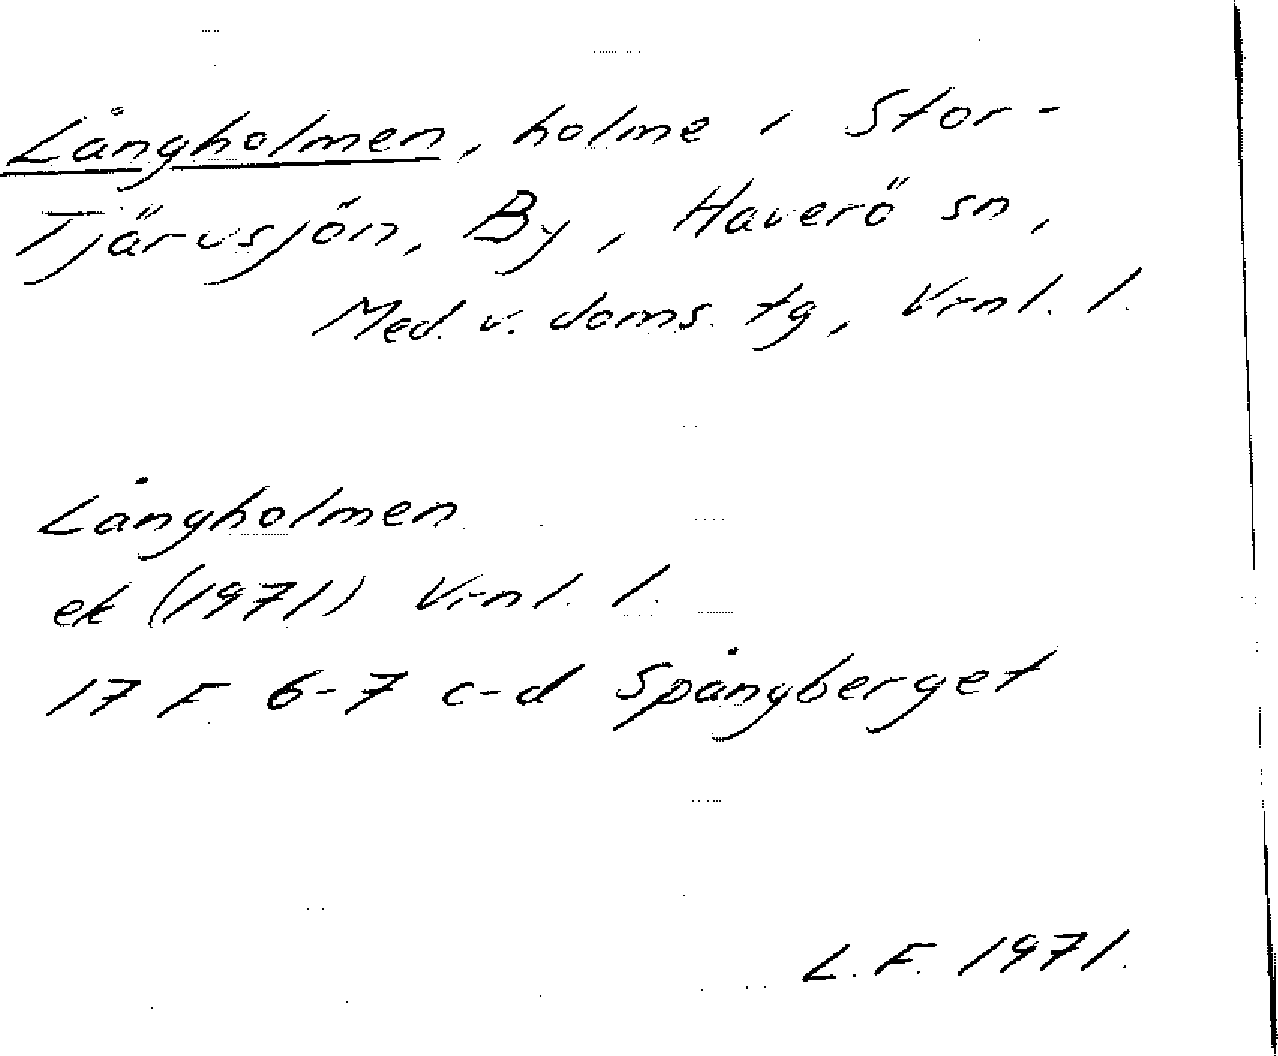 Långholmen, holme i Stor-
Tjärvsjön, By, Haverö sn,
Med. v. doms. tg, Vrnl. l.
Långholmen
ek (1971) Vrnl. l.
17 F 6-7 c-d Spångberget
L. F. 1971.